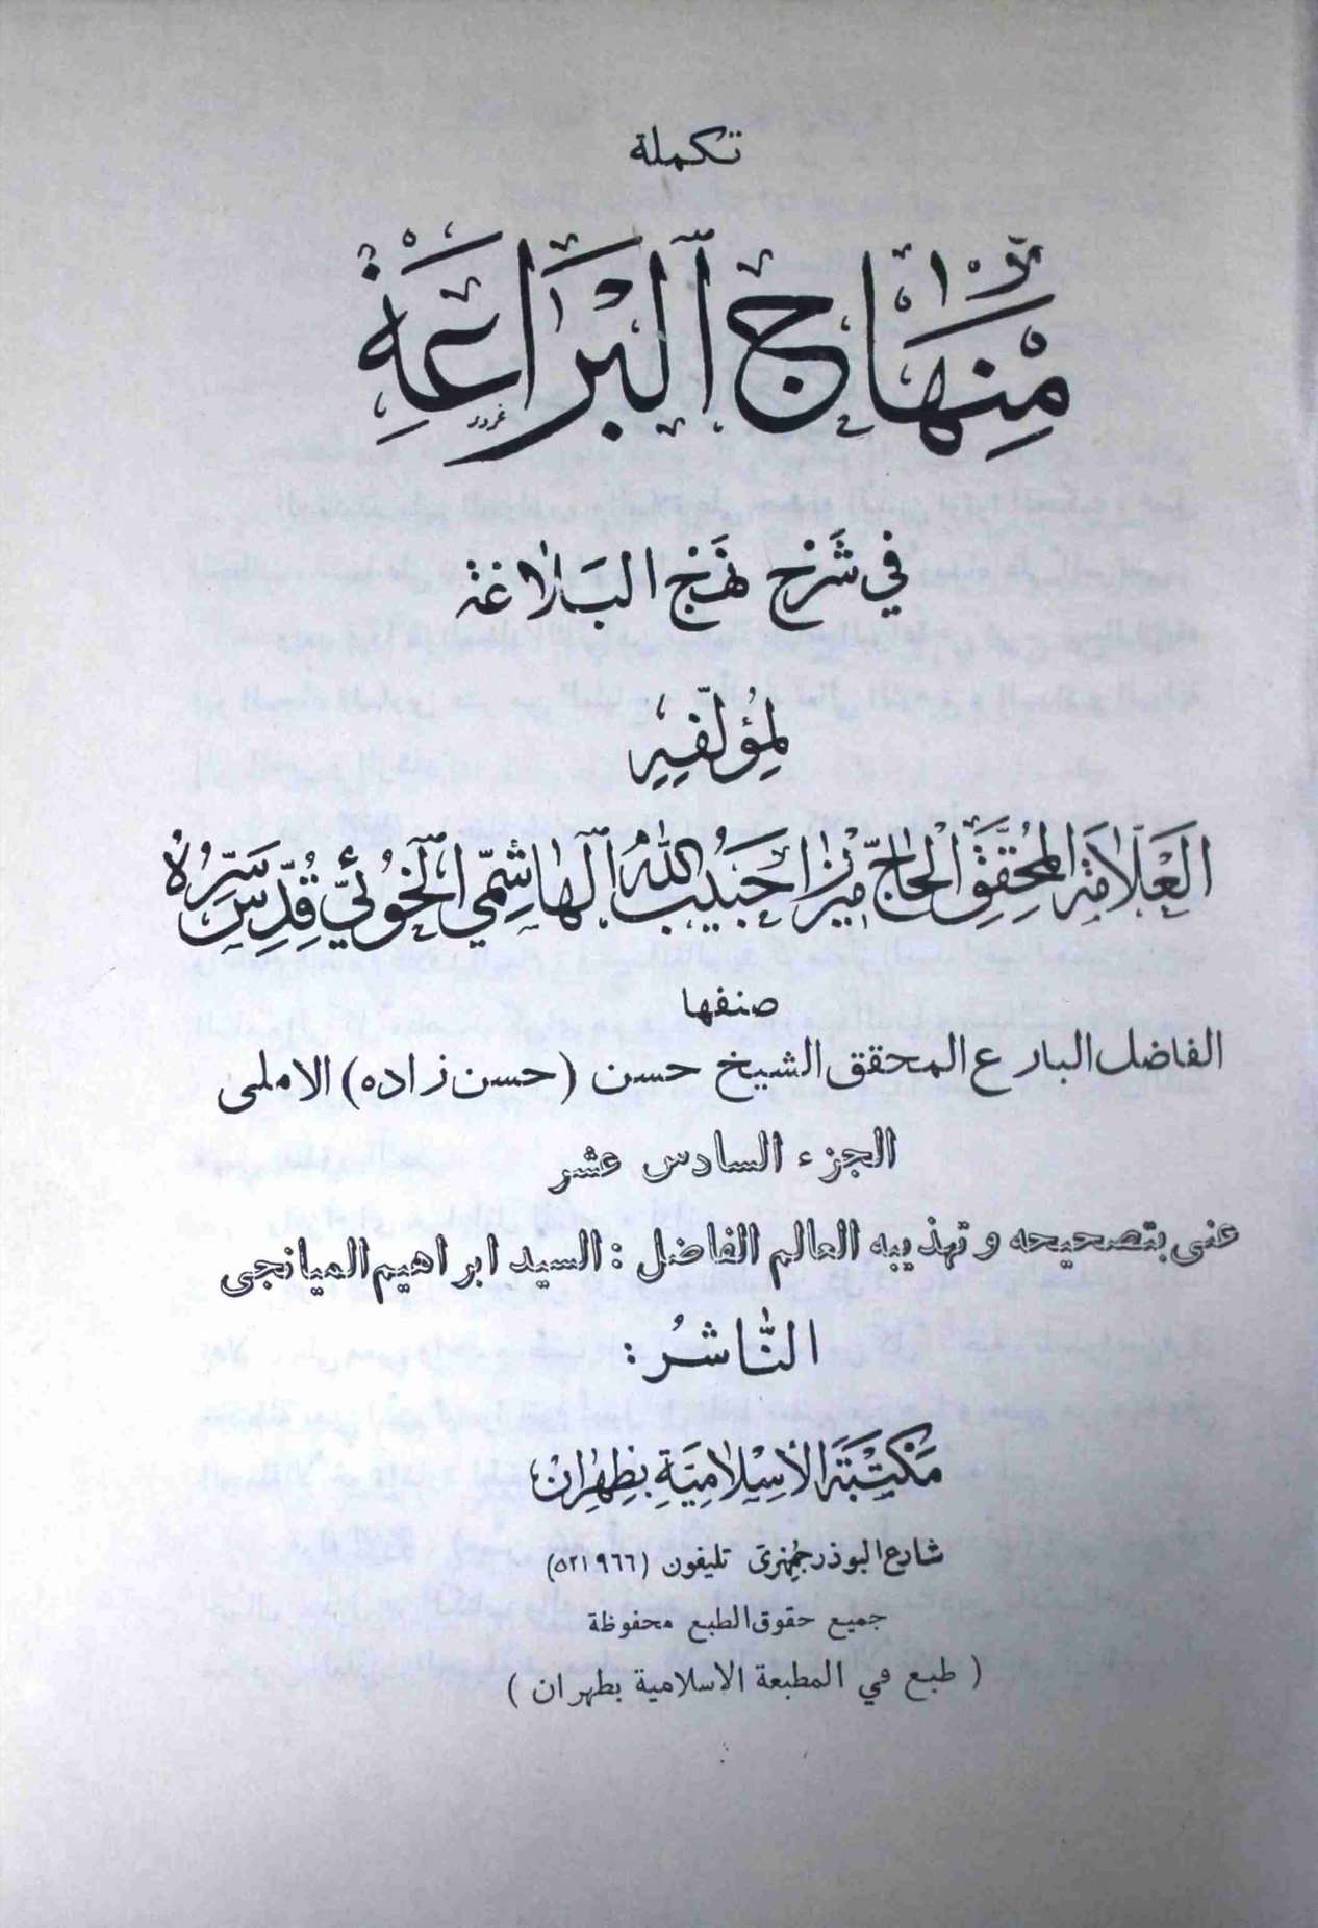 تكملة
مِنْهَاجُ ٱلْبَرَاعَةِ
في شَرْح نَهْج البَلاغة
لِمُؤلّفِهِ
العَلّامَة المُحَقِّق الحَاجّ مِيرْزا حَبيبُ اللهُ الهاشِمّي الخُوئيّ قُدِّسَ سِرُّهُ
صنفها
الفاضل البارع المحقق الشيخ حسن (حسن زاده) الاملى
الجزء السادس عشر
عنى بتصحيحه وتهذيبه العالم الفاضل : السيد ابراهيم الميانجى
النّاشرُ :
مَكْتبَة الاسِلامِيَةِ بِطِهران
شارع البوذرجمهرى تليفون (٥٢١٩٦٦)
جميع حقوق الطبع محفوظة
( طبع في المطبعة الاسلامية بطهران )